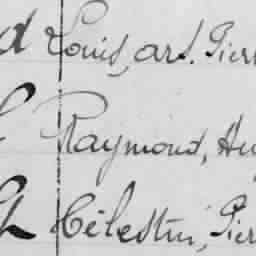 d Louis, ars. Pier
Raymond, Hu
Célestin, Pier